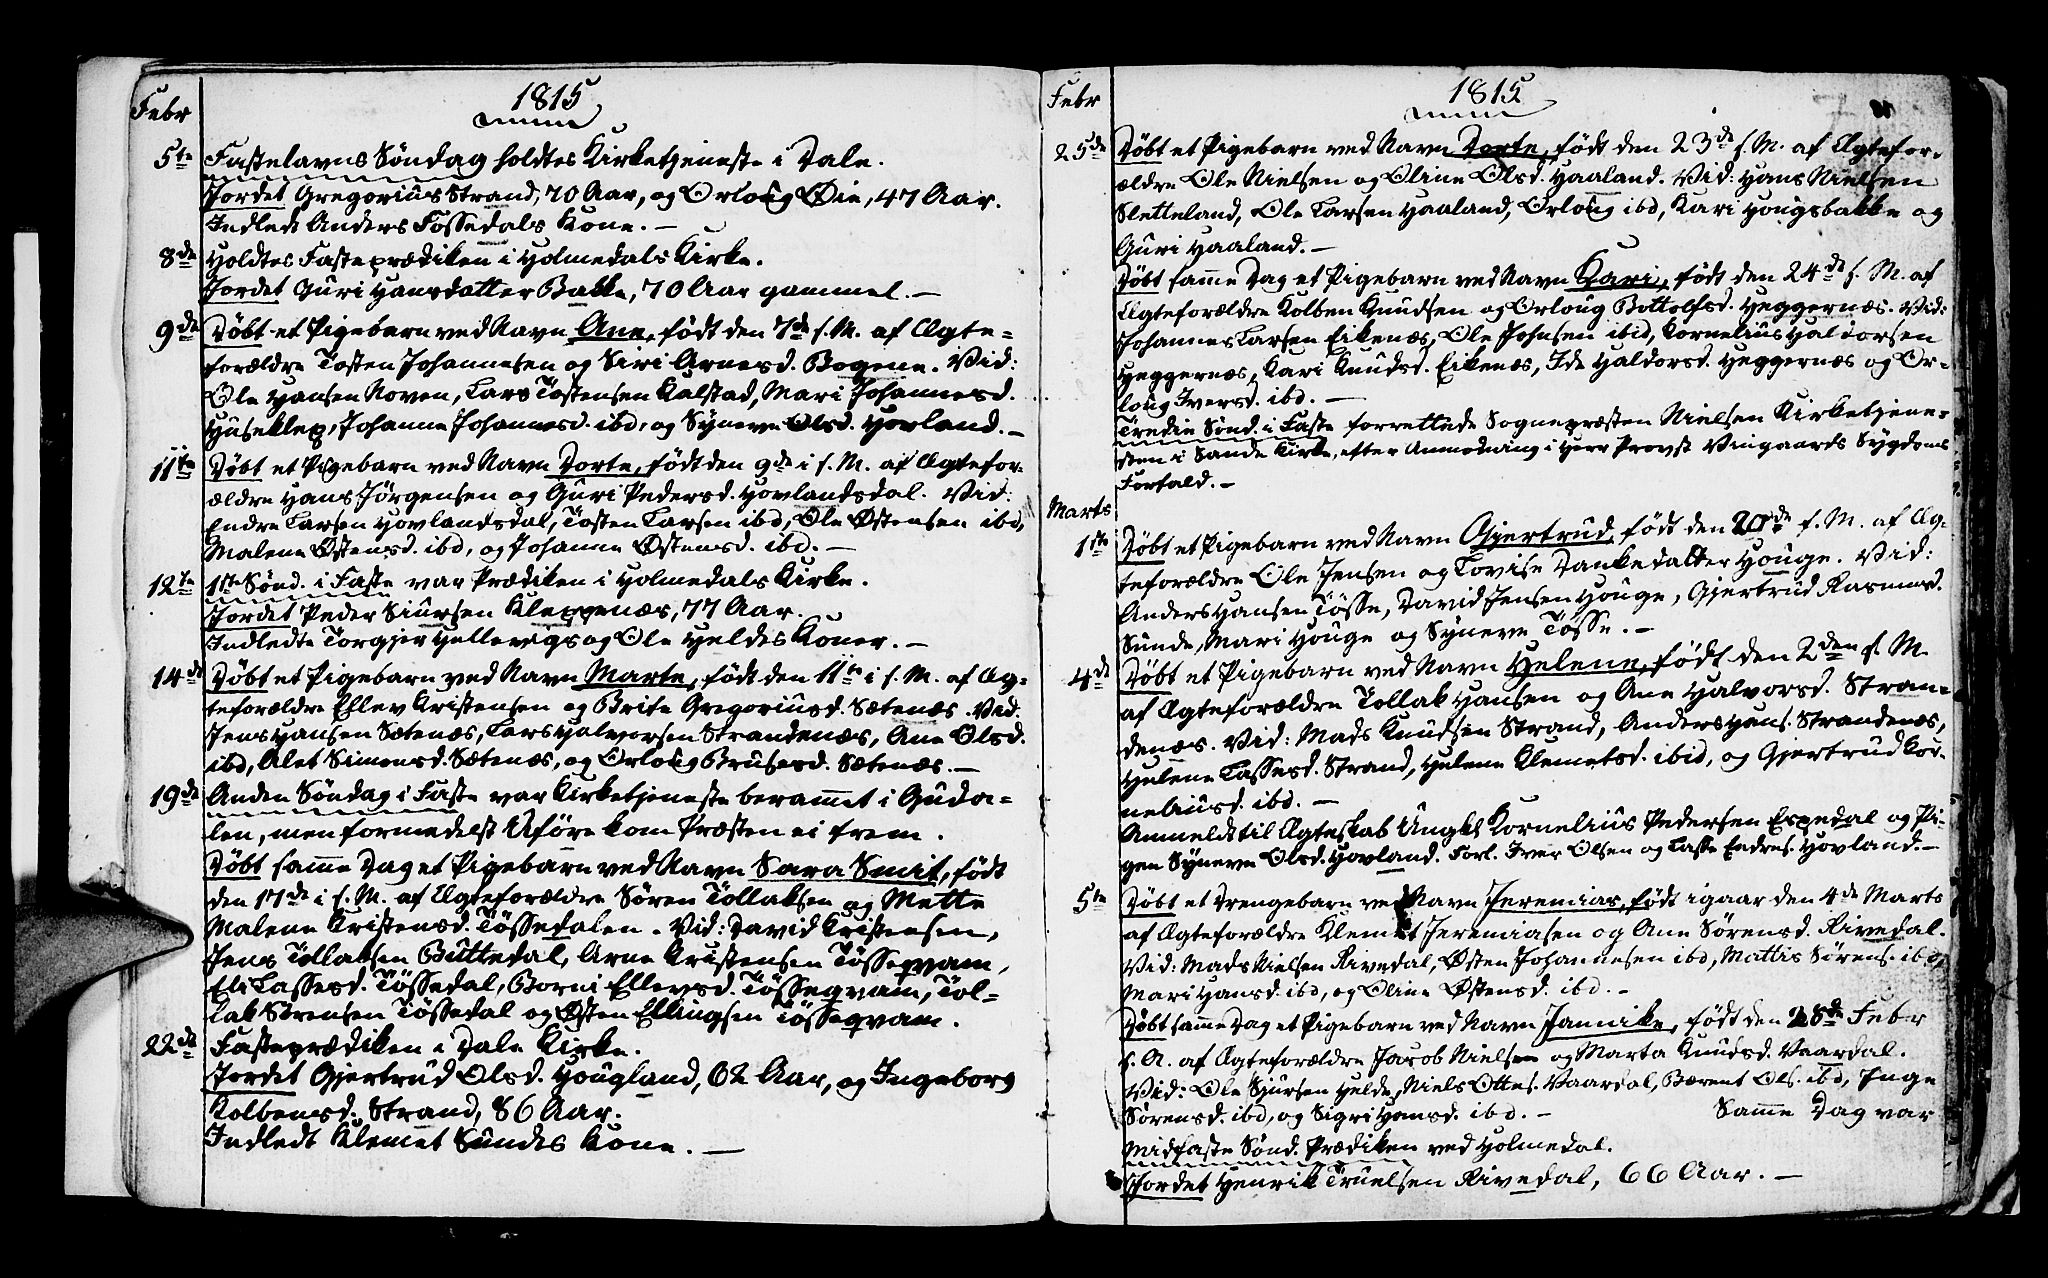 1815
Febr
5te Fastelavns Søndag holdtes Kirketjeneste i Dale.
Jordet Gregorius Strand, 70 Aar, og Orloug Øen, 47 Aar.
Indledt Anders Fossedals Kone. —
8de Holdtes Fasteprædiken i Holmedals Kirke.
Jordet Guri Hansdatter Bakke, 70 Aar gammel. —
9de Døbt et Pigebarn ved Navn Ane, født den 7de s. M. af Ægte=
forældre Tosten Johannesen og Siri Arnesd. Bogene. Vid:
Ole Hansen Noven, Lars Tostensen Kalstad, Mari Johannesd.
Huseklep, Johanne Johannesd. ibd, og Syneve Olsd. Hovland. —
11te Døbt et Pigebarn ved Navn Dorte, født den 9de i s. M. af Ægtefor=
ældre Hans Jørgensen og Guri Pedersd. Hovlandsdal. Vid:
Endre Larsen Hovlandsdal, Tosten Larsen ibd, Ole Østensen ibd,
Malene Østensd. ibd, og Johanne Østensd. ibd. —
12te 1ste Sønd. i Faste var Prædiken i Holmedals Kirke.
Jordet Peder Siursen Kleppenæs, 77 Aar.
Indledte Torgjer Hellevigs og Ole Heldes Koner. —
14de Døbt et Pigebarn ved Navn Marte, født den 11te i s. M. af Æg=
teforældre Ellev Kristensen og Brite Gregoriusd. Sætenæs. Vid:
Jens Hansen Sætenæs, Lars Halvorsen Strandenæs, Ane Olsd.
ibd, Alet Simonsd. Sætenæs, og Orloug Brusesd. Sætenæs. —
19de Anden Søndag i Faste var Kirketjeneste beramet i Guda=
len, men formedelst Uføre kom Præsten ei frem.
Døbt samme Dag et Pigebarn ved Navn Sara Smit, født
den 17de i s. M. af Ægteforældre Søren Tollaksen og Mette
Malene Kristensd. Tøssedalen. Vid: David Kristensen,
Jens Tollaksen Buttedal, Arne Kristensen Tøsseqvam,
Eli Lassesd. Tøssedal, Borni Ellevsd. Tøsseqvam, Tol=
lak Sørensen Tøssedal og Østen Ellingsen Tøsseqvam.
22de Fasteprædiken i Dale Kirke.
Jordet Gjertrud Olsd. Hougland, 62 Aar, og Ingeborg
Kolbensd. Strand, 86 Aar.
Indledt Klemet Sundes Kone. —
1815
Febr
25de Døbt et Pigebarn ved Navn Dorte, født den 23de s. M. af Ægtefor=
ældre Ole Nielsen og Oline Olsd. Haaland. Vid: Hans Nielsen
Sletteland, Ole Larsen Haaland, Orloug ibd, Kari Hougsbakke og
Guri Haaland. —
Døbt same Dag et Pigebarn ved Navn Kari, født den 24de s. M. af
Ægteforældre Kolben Knudsen og Orloug Bottolfsd. Heggernæs. Vid:
Johannes Larsen Eikenæs, Ole Johnsen ibid, Kornelius Haldorsen
Heggernæs, Kari Knudsd. Eikenæs, Ide Haldorsd. Heggernæs og Or=
loug Iversd. ibd. —
Tredie Sønd. i Faste forrettede Sognepræsten Nielsen Kirketjene=
sten i Sande Kirke, efter Anmodning i Herr Provst Vingaards Sygdoms
Forfald. —
Marts
1ste Døbt et Pigebarn ved Navn Gjertrud, født den de f. M. af Æg=
teforældre Ole Jensen og Lovise Dankedatter Houge. Vid:
Anders Hansen Tøsse, David Jensen Houge, Gjertrud Rasmusd.
Sunde, Mari Houge og Syneve Tøsse. —
4de Døbt et Pigebarn ved Navn Helene, født den 2den s. M.
af Ægteforældre Tollak Hansen og Ane Halvorsd. Stran=
denæs. Vid: Mads Knudsen Strand, Anders Hans. Strandenæs,
Helene Lassesd. Strand, Helene Klemetsd. ibid, og Gjertrud Kor=
neliusd. ibd. —
Anmeldt til Ægteskab Ungkl Kornelius Pedersen Espedal og Pi=
gen Syneve Olsd. Hovland. Forl. Iver Olsen og Lasse Endres. Hovland. —
5te Døbt et Drengebarn ved Navn Jeremias, født igaar den 4de Marts
af Ægteforældre Klemet Jeremiasen og Ane Sørensd. Rivedal.
Vid: Mads Nielsen Rivedal, Østen Johannesen ibd, Mattis Sørens. ibd,
Mari Hansd. ibd, og Oline Østensd. ibd. —
Døbt samme Dag et Pigebarn ved Navn Jannike, født den 28de Febr
s. A. af Ægteforældre Jacob Nielsen og Marta Knudsd. Vaardal.
Vid: Ole Sjursen Helde, Niels Ottes. Vaardal, Bærent Ols. ibd, Inge
Sørensd. ibd, og Sigri Hansd. ibd. — Samme Dag var
Midfaste Sønd. Prædiken ved Holmedal.
Jordet Henrik Truelsen Rivedal, 66 Aar. —